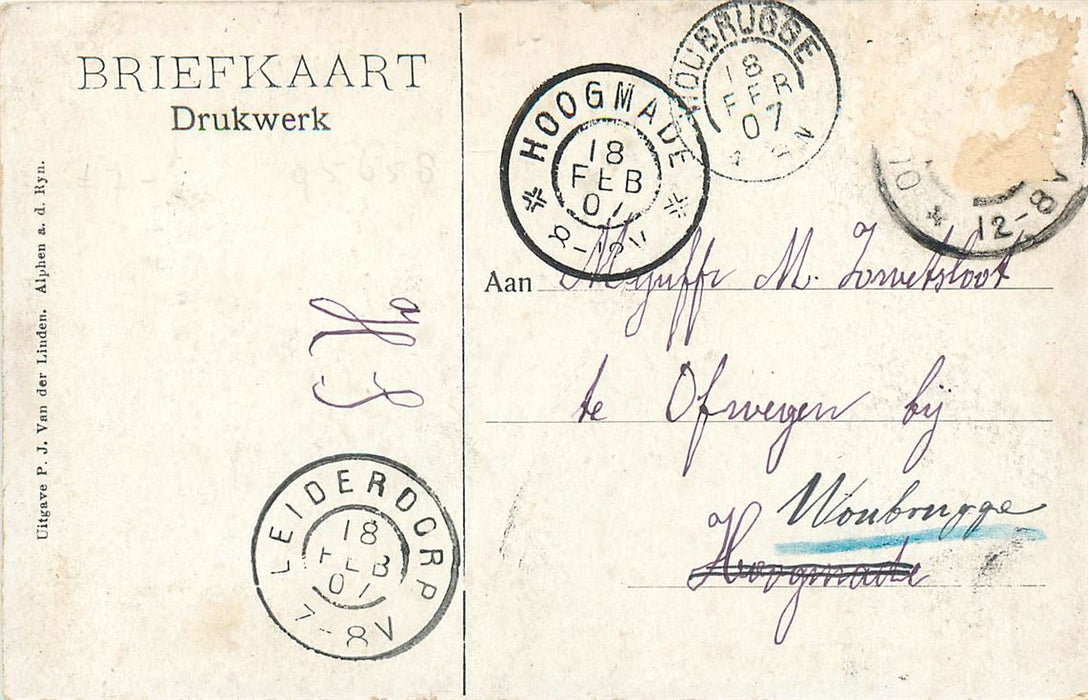 BRIEFKAART
Drukwerk
Uitgave P. J. Van der Linden. Alphen a. d. Ryn.
LEIDERDORP
18
FEB
07
7-8V
HOOGMADE
18
FEB
07
8-12V
WOUBRUGGE
18
FEB
07
12-8V
Aan Mejuffr M.
te Ofwegen bij
Woubrugge
Hoogmade